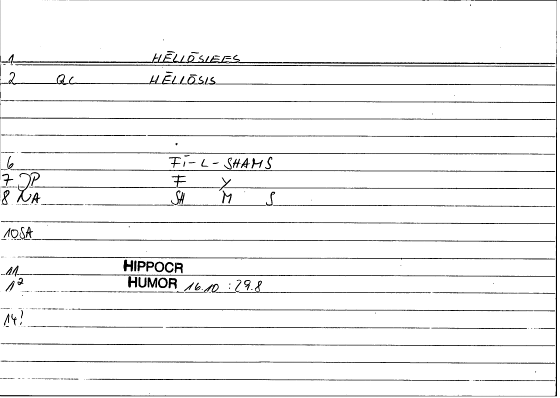 1 HĒLIŌSIEES
2 QC HĒLIŌSIS
6 FĪ-L-SHAMS
7 JP F Y
8 NA SH M S
10 SA
11 HIPPOCR
1² HUMOR 16.10 : 29.8
14!